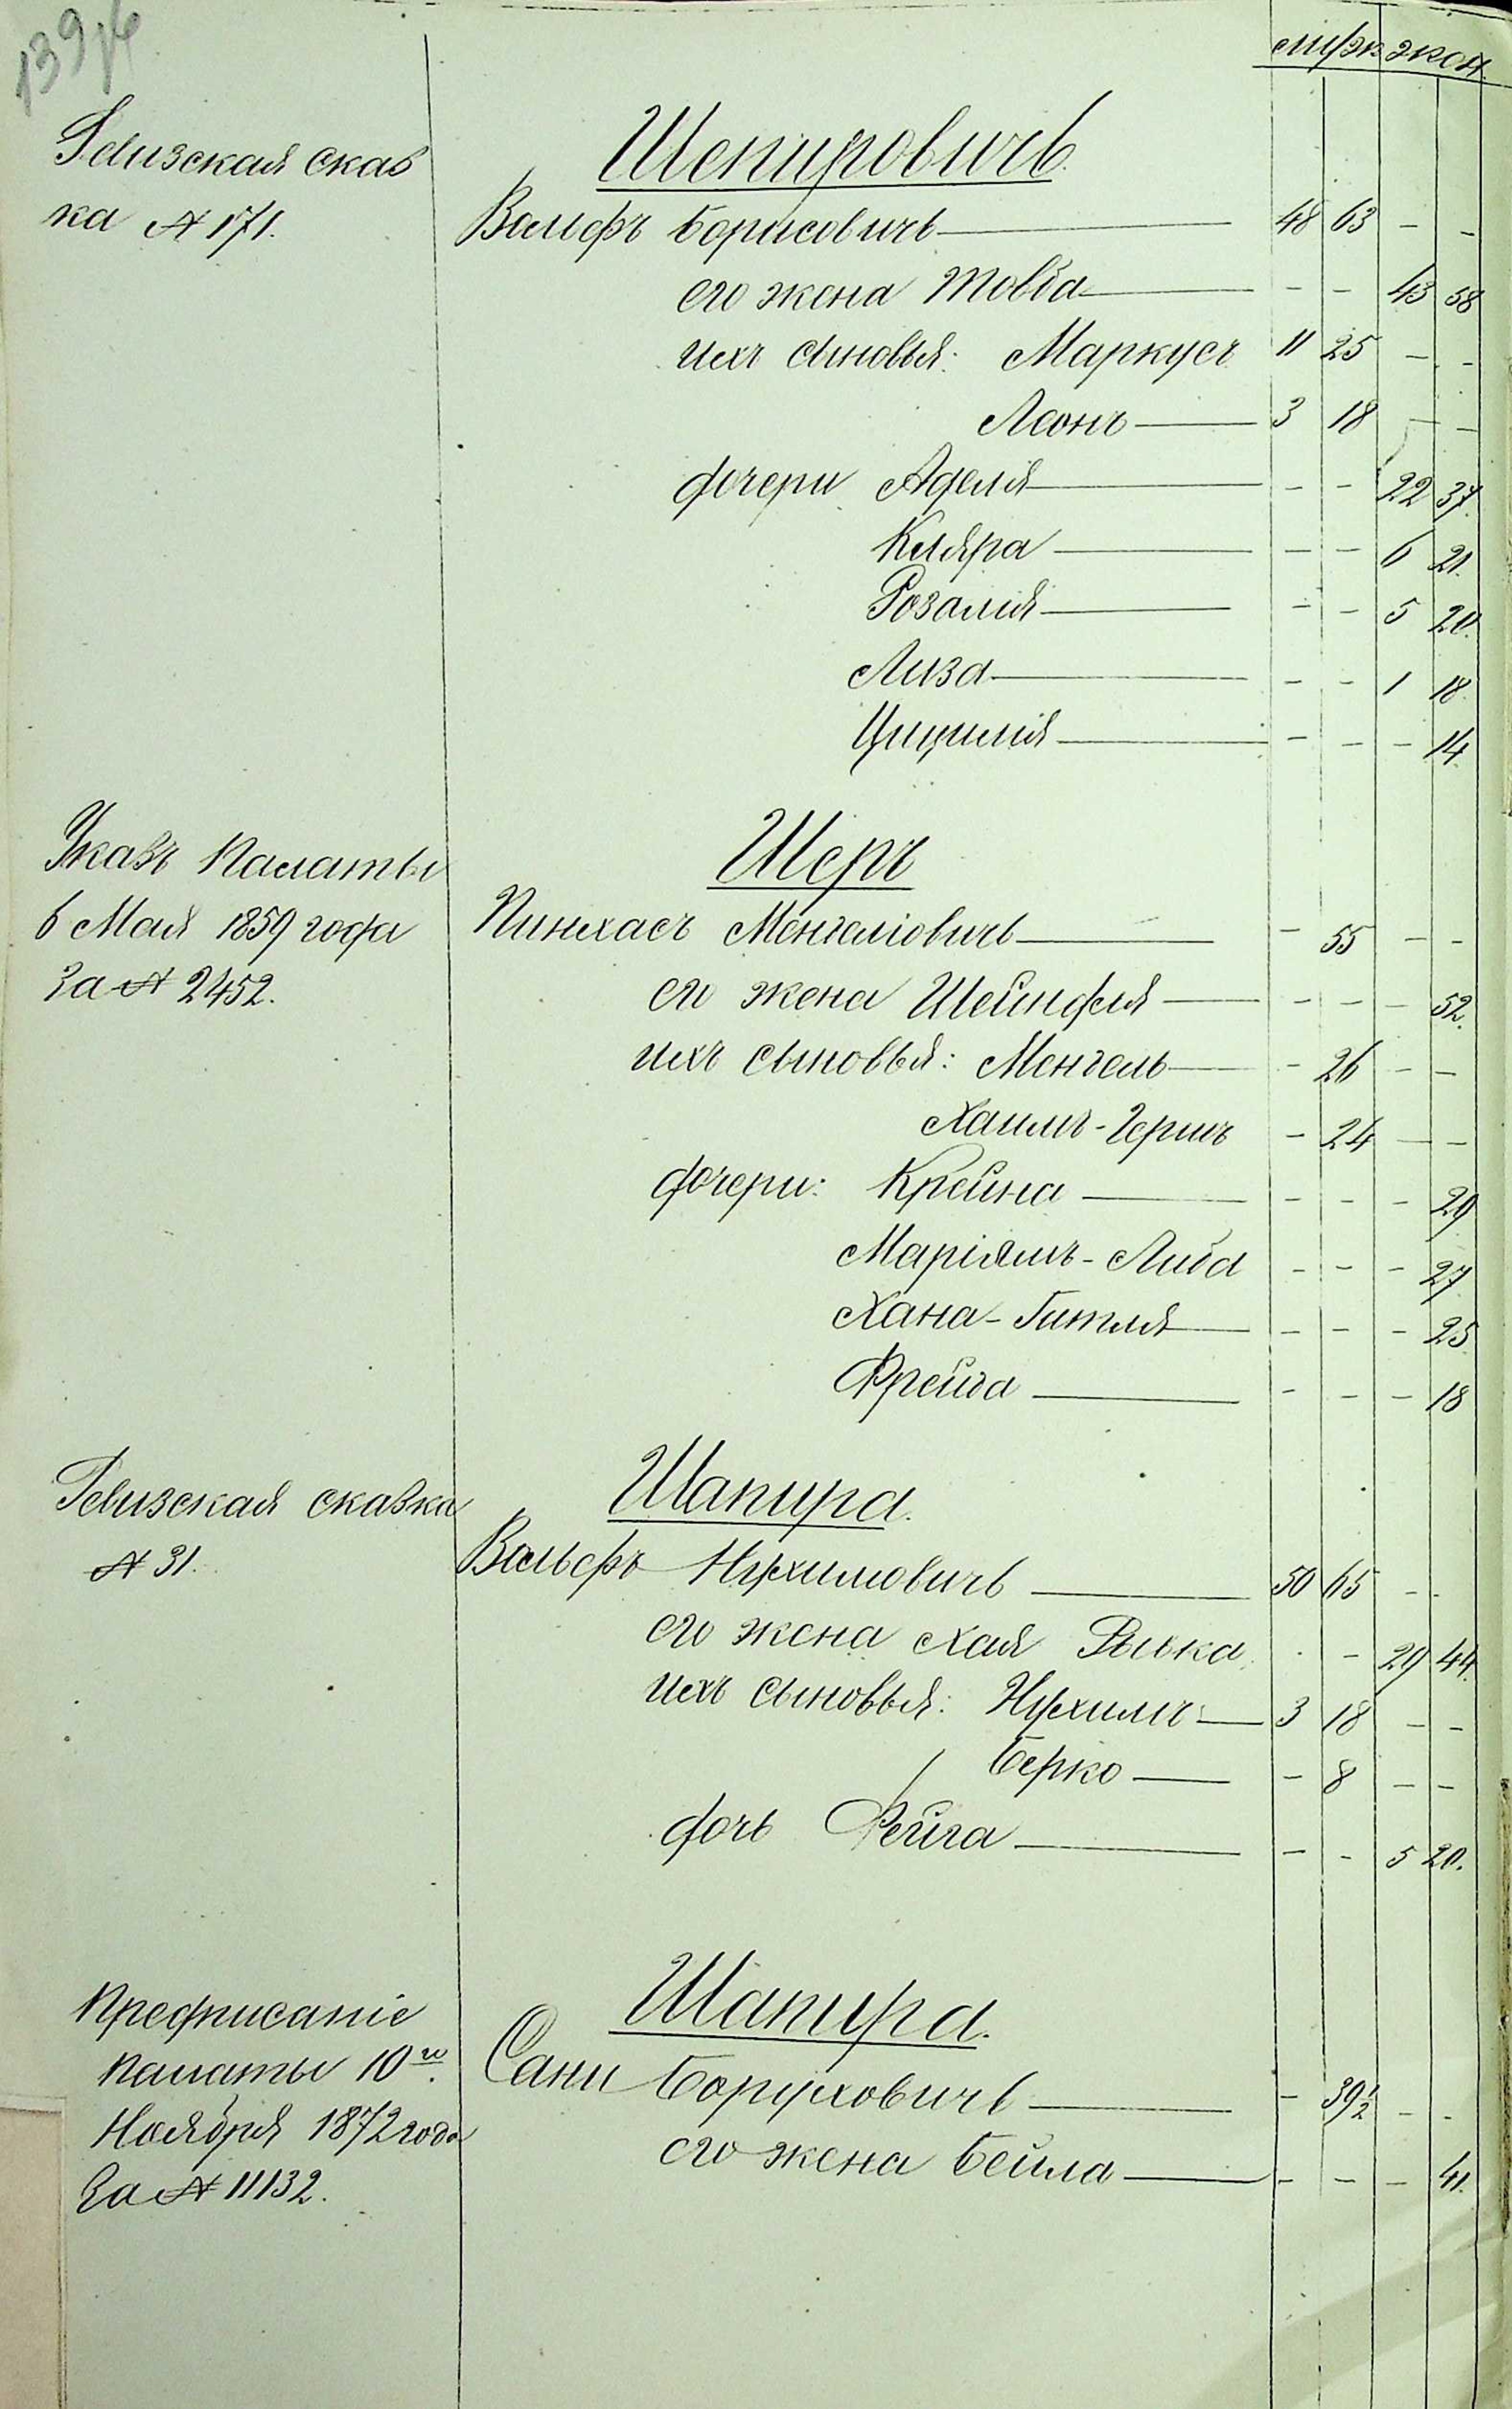 139 об
муж. жен.
Ревизская сказ
ка № 171.
Шепировичъ.
Вольфъ Борисовичъ — 48 63 - -
его жена Товба — - - 43 58
ихъ сыновья: Маркусъ 11 25 - -
Леонъ — 3 18 - -
дочери Аделія — - - 22 37.
Кляра — - - 6 21.
Розалія — - - 5 20.
Лиза — - - 1 18
Цицилія — - - - 14
Указъ Палаты
6 Мая 1859 года
За № 2452.
Шеръ
Пинхасъ Менгеліовичъ — - 55 - -
его жена Шейндля — - - - 52.
ихъ сыновья: Менгель — - 26 - -
Хаимъ-Гершъ - 24 - -
дочери: Крейна — - - - 29
Маріямъ-Либа - - - 27
Хана-Гитля — - - - 25
Фрейда — - - - 18
Ревизская сказка
№ 31.
Шапира.
Вольфъ Нухимовичъ — 50 65 - -
его жена Хая Рывка - - 29 44.
ихъ сыновья: Нухимъ — 3 18 - -
Берко — - 8 - -
дочь Фейга — - - 5 20.
Предписаніе
Палаты 10го
Ноября 1872 года
За № 11132.
Шапира.
Сани Боруховичъ — - 39½ - -
его жена Бейла — - - - 41.